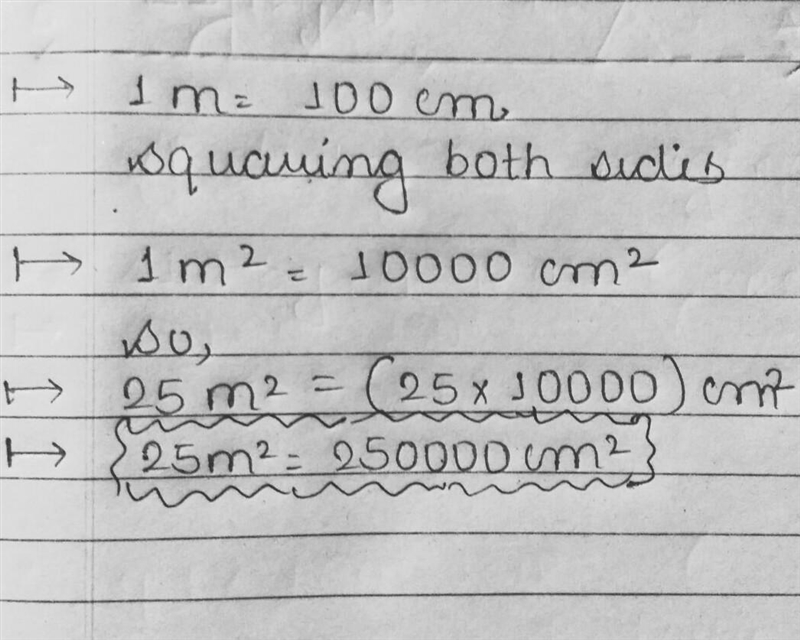 ↦ 1 m = 100 cm,
squaring both sides
↦ 1 m² = 10000 cm²
so,
↦ 25 m² = (25 x 10000) cm²
↦ {25m² = 250000 cm²}